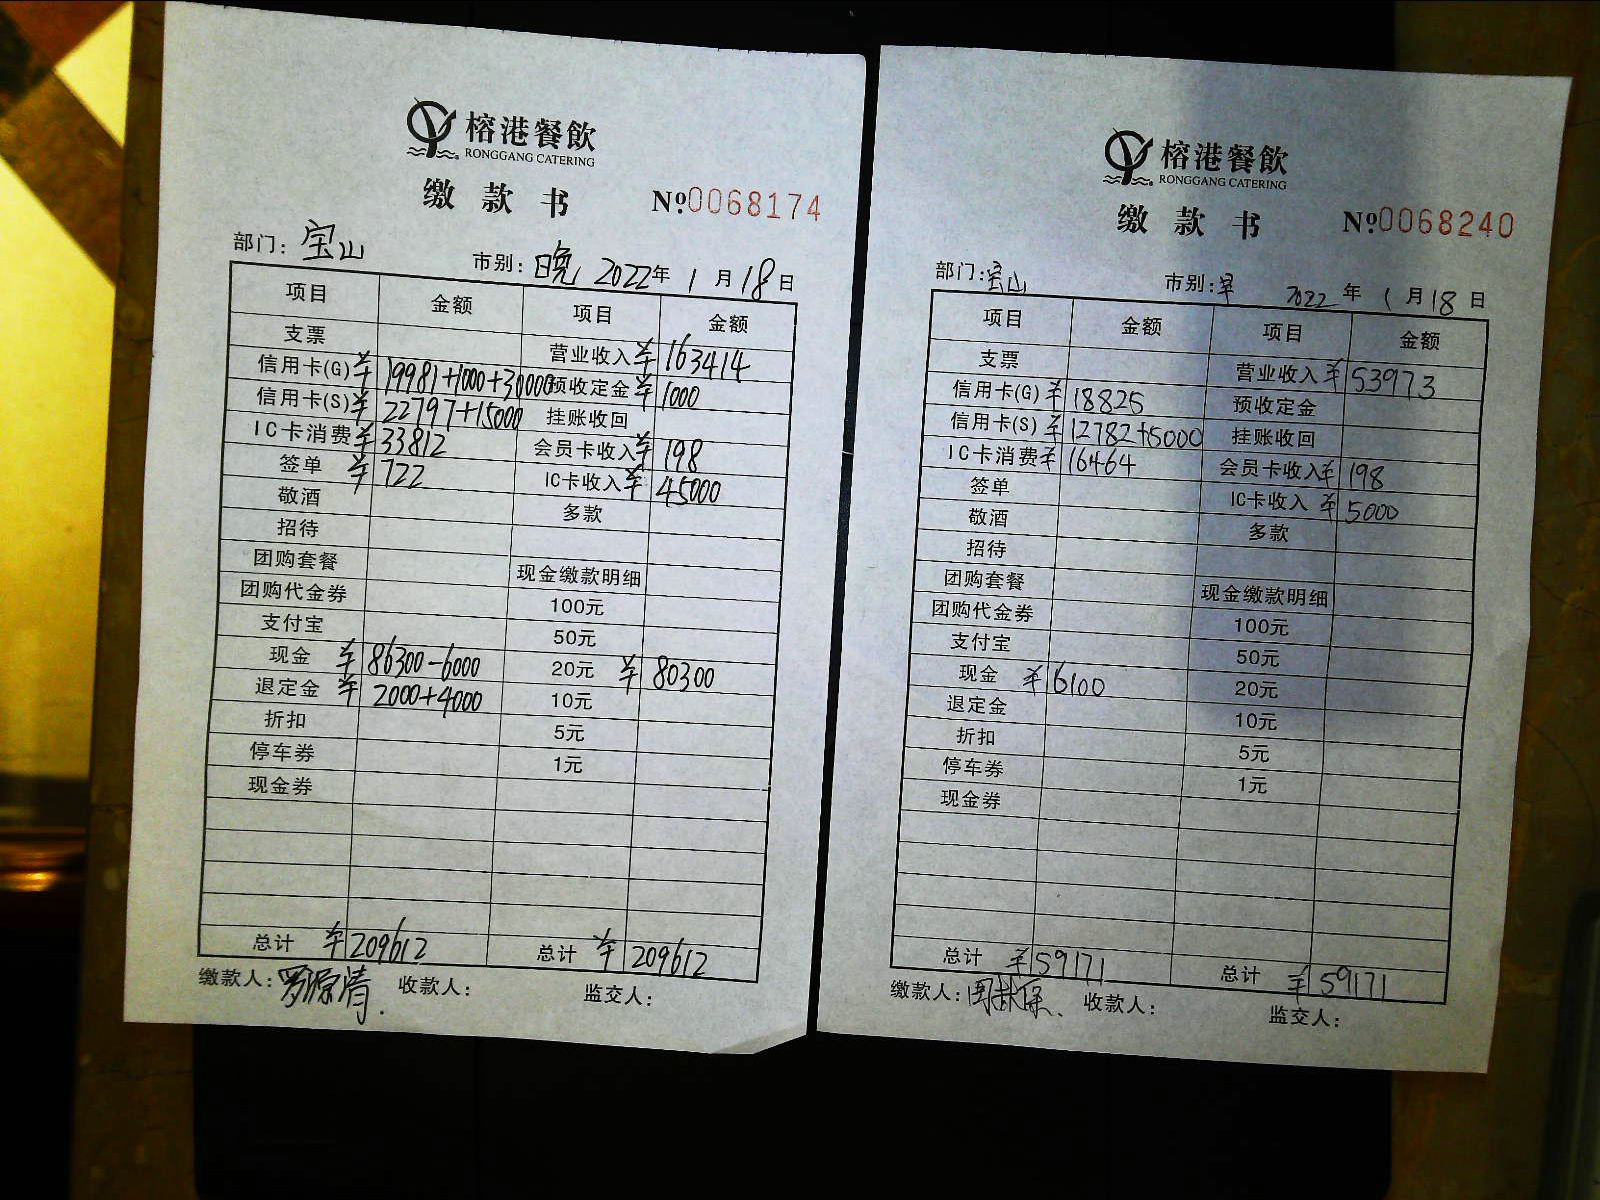 榕港餐飲
RONGGANG CATERING
缴款书 №0068174
部门: 宝山 市别: 晚 2022年 1月18日
项目 金额 项目 金额
支票 营业收入 ¥163414
信用卡(G) ¥19981+1000+30000 预收定金 ¥1000
信用卡(S) ¥22797+15000 挂账收回
IC卡消费 ¥33812 会员卡收入 ¥198
签单 ¥722 IC卡收入 ¥45000
敬酒 多款
招待
团购套餐 现金缴款明细
团购代金券 100元
支付宝 50元
现金 ¥86300-6000 20元 ¥80300
退定金 ¥2000+4000 10元
折扣 5元
停车券 1元
现金券
总计 ¥209612 总计 ¥209612
缴款人: 罗源清. 收款人: 监交人:
榕港餐飲
RONGGANG CATERING
缴款书 №0068240
部门: 宝山 市别: 早 2022年 1月18日
项目 金额 项目 金额
支票 营业收入 ¥53973
信用卡(G) ¥18825 预收定金
信用卡(S) ¥12782+5000 挂账收回
IC卡消费 ¥16464 会员卡收入 ¥198
签单 IC卡收入 ¥5000
敬酒 多款
招待
团购套餐 现金缴款明细
团购代金券 100元
支付宝 50元
现金 ¥6100 20元
退定金 10元
折扣 5元
停车券 1元
现金券
总计 ¥59171 总计 ¥59171
缴款人: 收款人: 监交人: